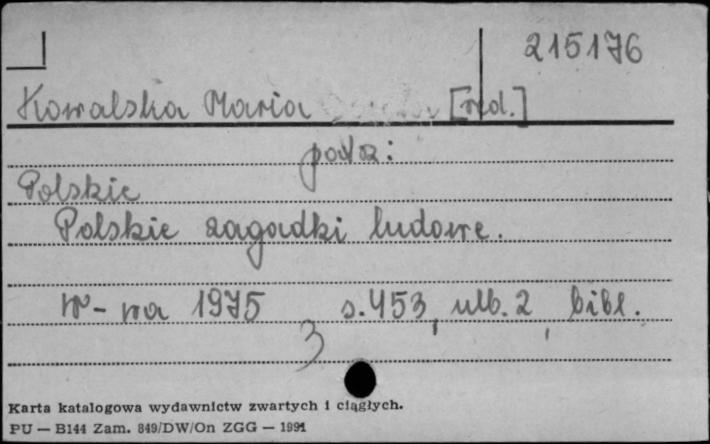 215176
Kowalska Maria [red.]
patrz:
Polskie
Polskie zagadki ludowe.
W-wa 1975 s. 453, nlb. 2, bibl.
3
Karta katalogowa wydawnictw zwartych i ciągłych.
PU — B144 Zam. 849/DW/On ZGG — 1991